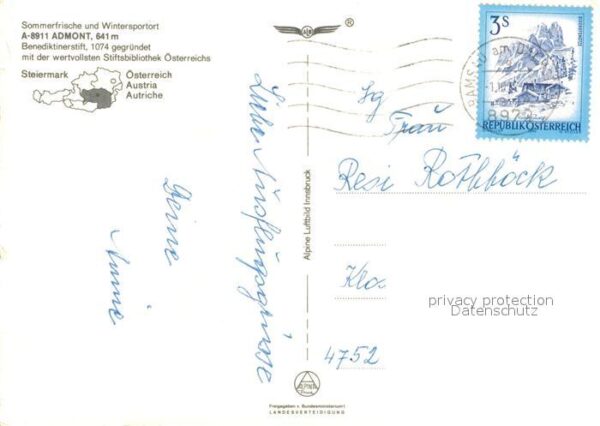 Sommerfrische und Wintersportort
A-8911 ADMONT, 641 m
Benediktinerstift, 1074 gegründet
mit der wertvollsten Stiftsbibliothek Österreichs
Steiermark
Österreich
Austria
Autriche
®
3S
REPUBLIK ÖSTERREICH
RAMSAU am
8972
Liebe
Deine
Alpine Luftbild Innsbruck
Sg
Frau
Resi Rothböck
4752
privacy protection
Datenschutz
ALPINE
Freigegeben v. Bundesministerium f.
LANDESVERTEIDIGUNG